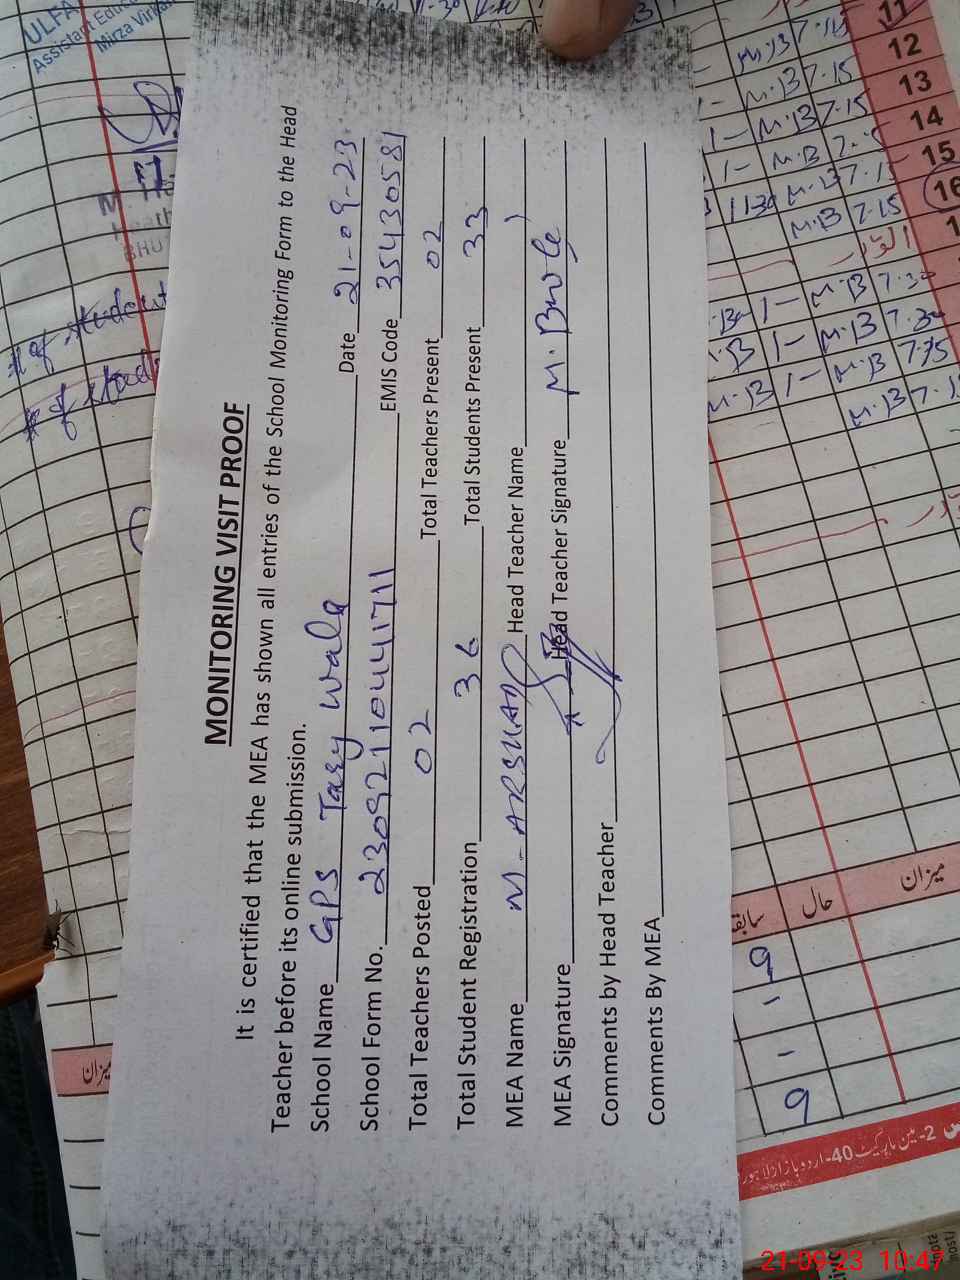 MONITORING VISIT PROOF
It is certified that the MEA has shown all entries of the School Monitoring Form to the Head
Teacher before its online submission.
School Name GPS Tasy wala Date 21-09-23
School Form No. 23092110441711 EMIS Code 35430581
Total Teachers Posted 02 Total Teachers Present 02
Total Student Registration 36 Total Students Present 33
MEA Name M-ARSHAD Head Teacher Name
MEA Signature Head Teacher Signature
Comments by Head Teacher
Comments By MEA
ULFA
Assistant Educ
Mirza Virk
# of student
# of stud
11
M.B 7.15
12
M.B 7.15
13
1- M.B 7.15
14
1- M.B 7.
15
1130 M.B 7.1
16
M.B 7.15
اتوار
1- M.B 7.30
M.B 1- M.B 7.30
M.B 1- M.B 7.15
M.B 7.1
سابقہ
حال
میزان
9
-
-
9
میزان
2-مین مارکیٹ 40-اردو بازار لاہور
21-09-23 10:47